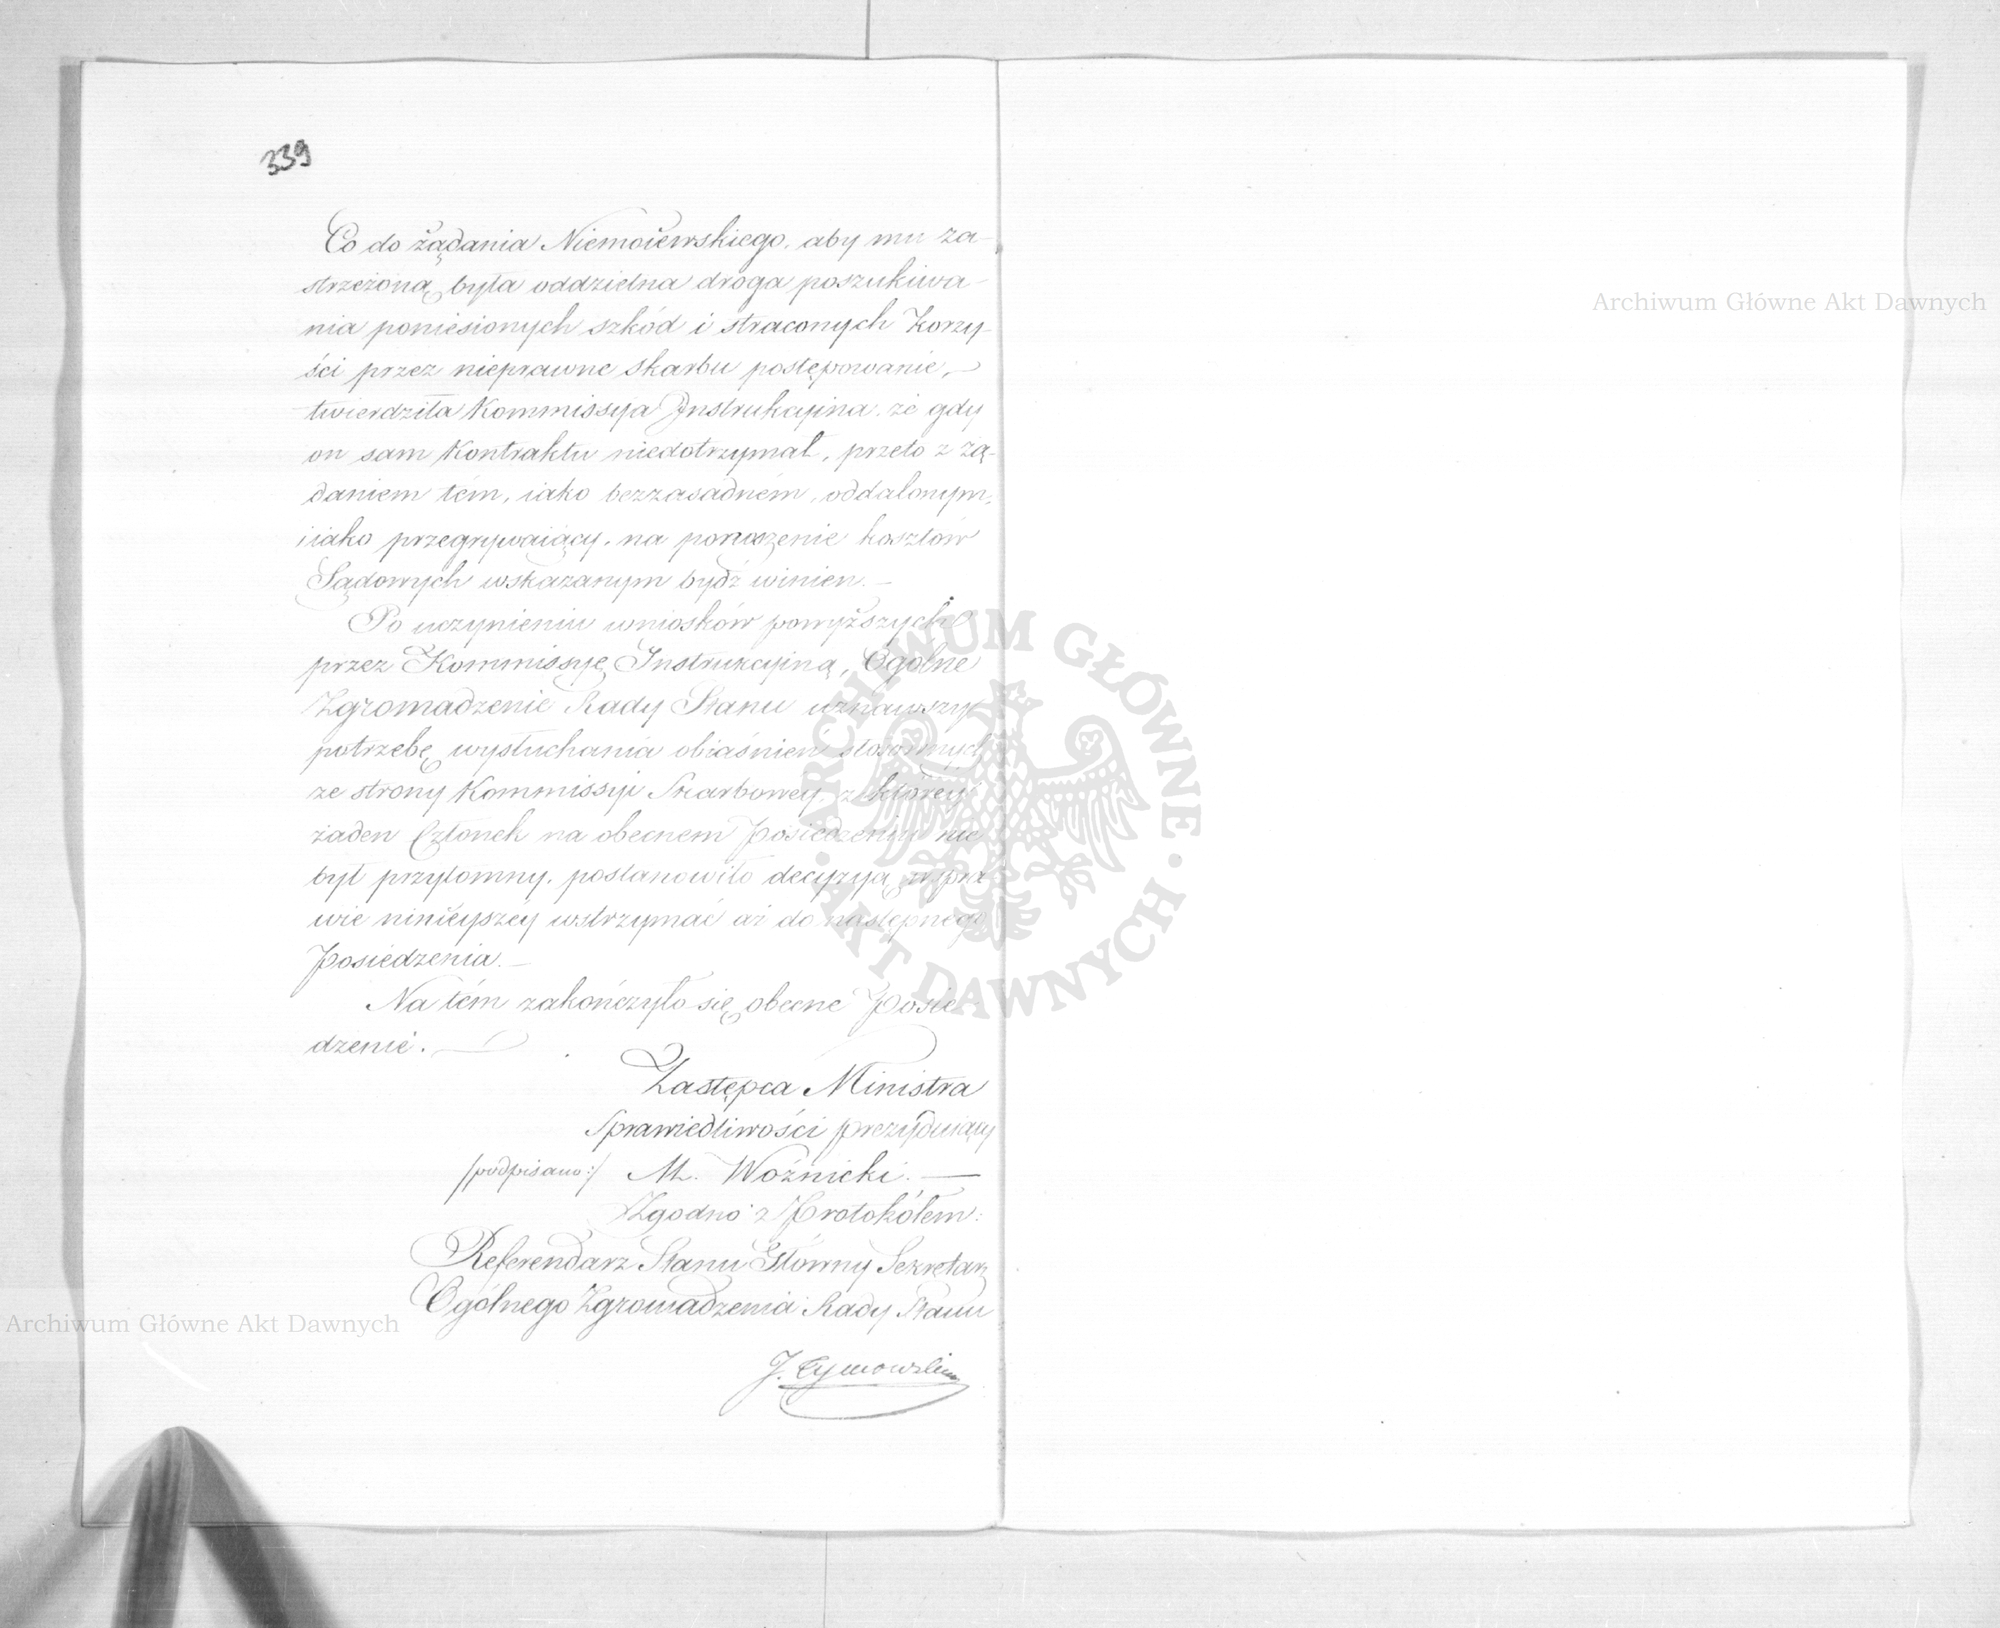 339
Co do żądania Niemoiewskiego, aby mu za-
strzeżoną była oddzielna droga poszukiwa-
nia poniesionych szkód i straconych korzy-
ści przez nieprawne skarbu postępowanie, —
twierdziła Kommissyja Instrukcyina, że gdy
on sam Kontraktu niedotrzymał, przeto z żą-
daniem tém, iako bezzasadném, oddalonym,
i iako przegrywaiący, na ponoszenie kosztów
Sądowych wskazanym bydź winien. —
Po uczynieniu wniosków powyższych
przez Kommissyę Instrukcyiną, Ogólne
Zgromadzenie Rady Stanu uznawszy
potrzebę wysłuchania obiaśnień stosownych
ze strony Kommissyi Skarbowey, z którey
żaden Członek na obecnem Posiedzeniu nie
był przytomny, postanowiło decyzyą w spra-
wie ninieyszéy wstrzymać aż do następnego
Posiedzenia. —
Na tém zakończyło się obecne Posie-
dzenie. —
Zastępca Ministra
Sprawiedliwości prezyduiący
/podpisano:/ M. Woźnicki. —
Zgodno z Protokółem:
Referendarz Stanu Główny Sekretarz
Ogólnego Zgromadzenia Rady Stanu
J. Tymowski
Archiwum Główne Akt Dawnych
ARCHIWUM GŁÓWNE
AKT DAWNYCH
Archiwum Główne Akt Dawnych